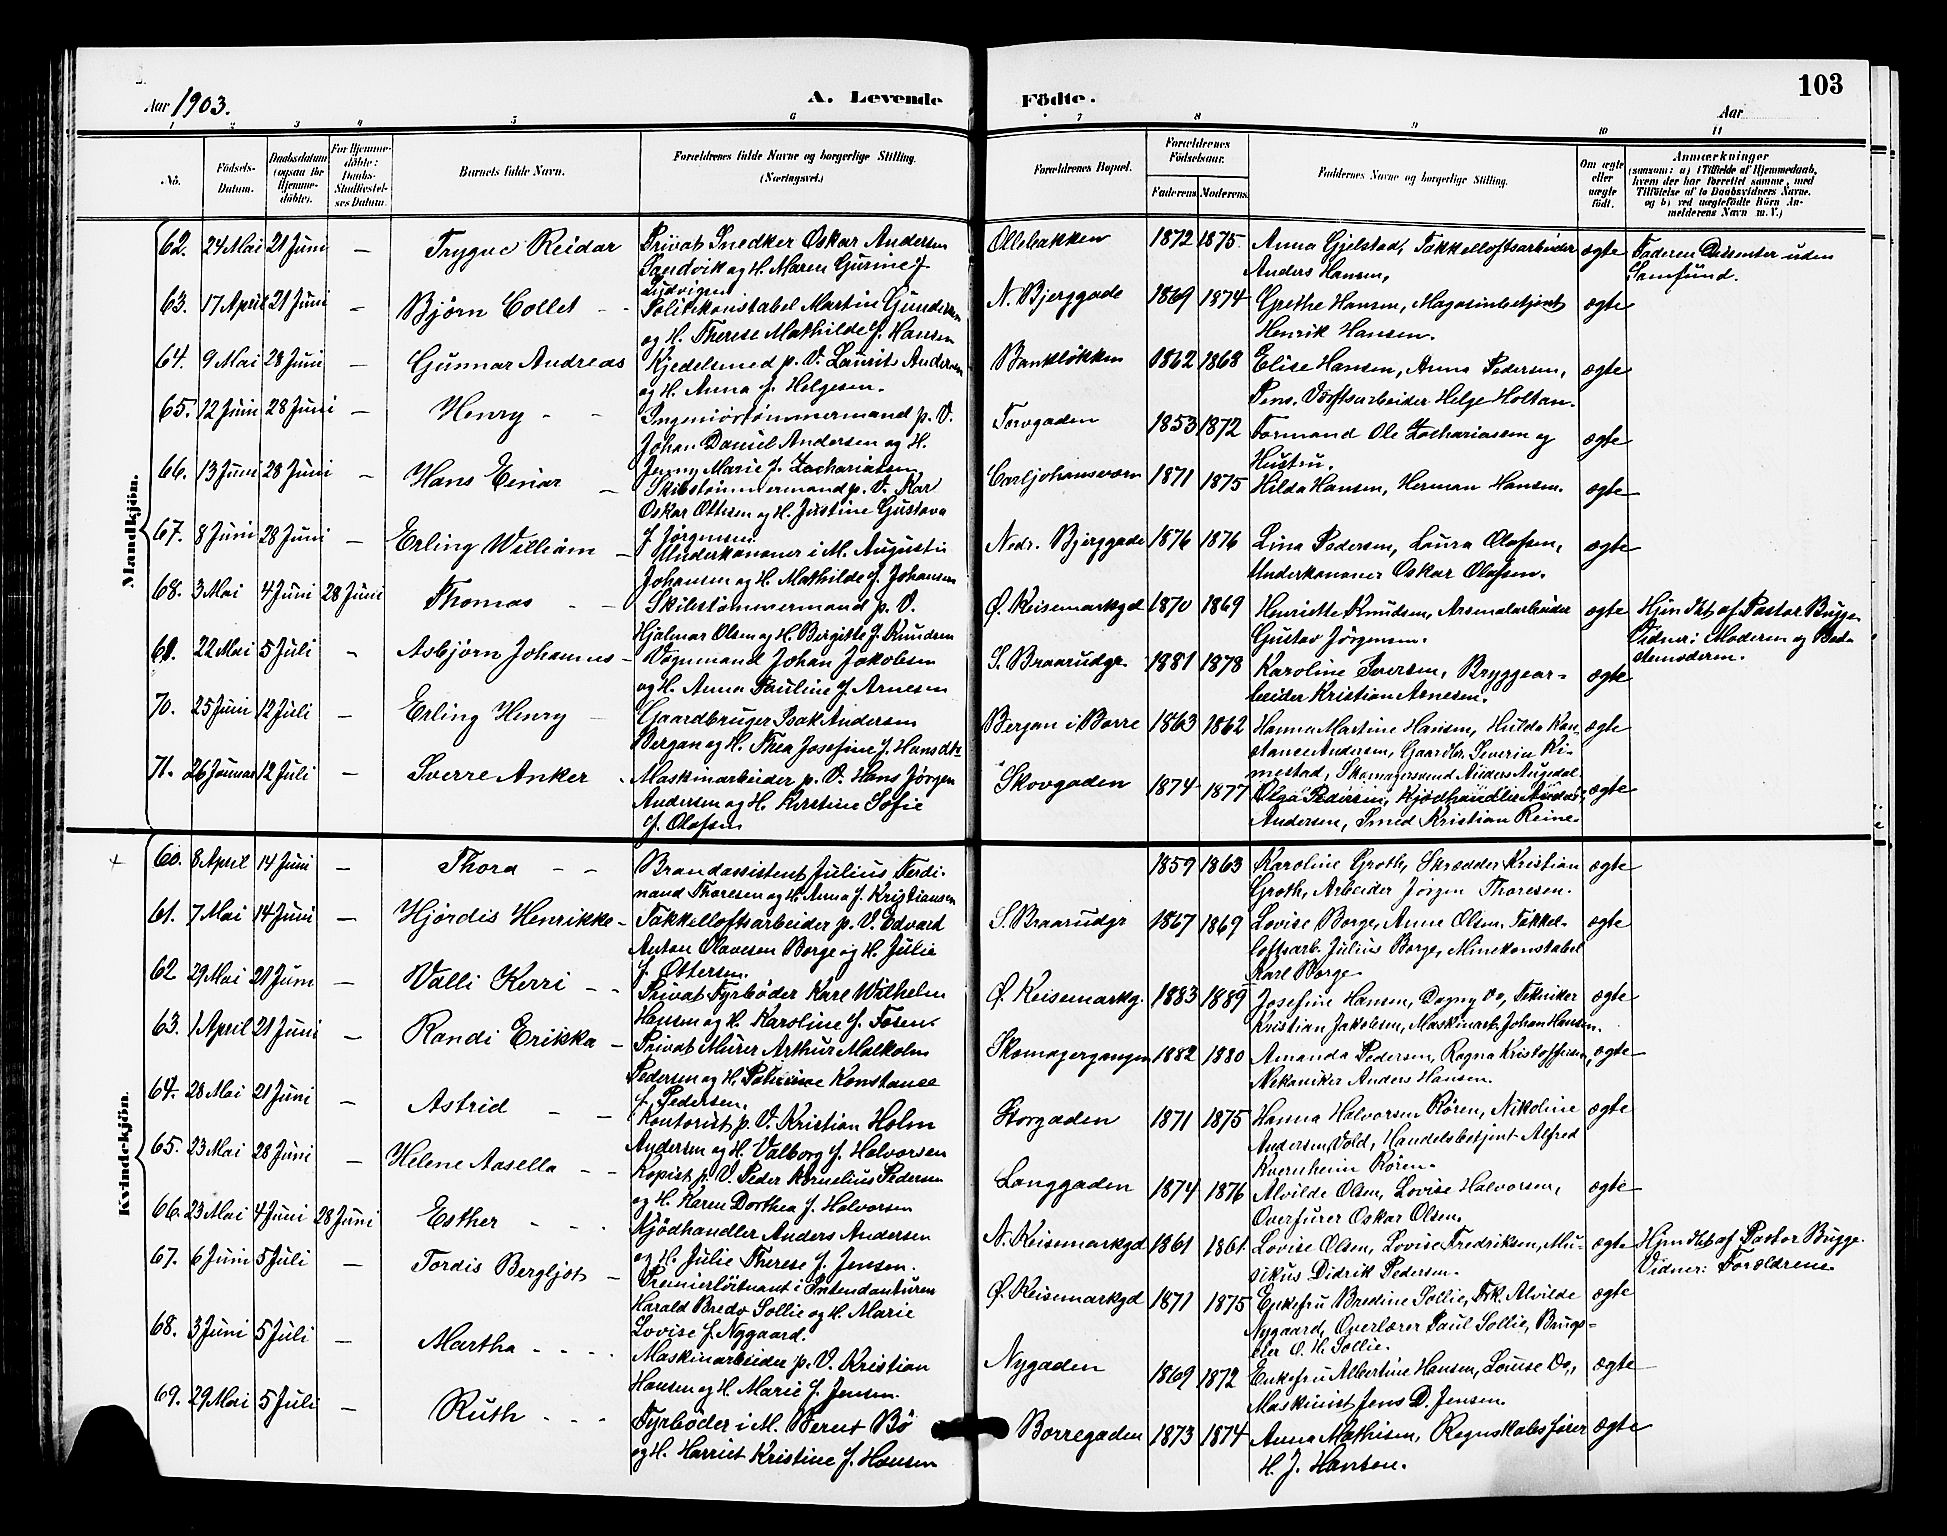 Aar 1903.
A. Levende
Födte.
Aar
103
1 2 3 4 5 6 7 8 9 10 11
No.
Födsels-Datum.
Daabsdatum (ogsaa for Hjemmedöbte).
For Hjemmedöbte: Daabs-Stadfæstelses Datum.
Barnets fulde Navn.
Forældrenes fulde Navne og borgerlige Stilling. (Næringsvei.)
Forældrenes Bopæl.
Forældrenes Födselsaar.
Faderens Moderens
Faddernes Navne og borgerlige Stilling.
Om ægte eller uægte födt.
Anmærkninger
(saasom: a) i Tilfælde af Hjemmedaab, hvem der har forrettet samme, med Tilföielse af to Daabsvidners Navne. og b) ved uægtefödte Börn Anmelderens Navn m. V.)
Mandkjön.
62. 24 Mai 21 Juni — Trygve Reidar Privat Snedker Oskar Andersen Sandvik og H. Maren Gurine f. Ludvigsen Ollebakken 1872 1875. Anna Gjelstad, Takkelloftsarbeider Anders Hansen, ægte Faderen Dissenter uden Samfund.
63. 17 April 21 Juni — Bjørn Collet Politikonstabel Martin Gundersen og H. Therese Mathilde f. Hansen N. Bjerggade 1869 1874 Grethe Hansen, Magasinbetjent Henrik Hansen. ægte
64. 9 Mai 28 Juni — Gunnar Andreas Kjedelsmed p. V. Laurits Andersen og H. Anna f. Helgesen. Bankløkken 1862 1868 Elise Hansen, Anna Pedersen, Pens. Værftsarbeider Helge Holtan. ægte
65. 12 Juni 28 Juni — Henry Ingeniørtømmermand p. V. Johan Daniel Andersen og H. Jenny Marie f. Zachariasen Torvgaden 1853 1872 Formand Ole Zachariassen og Hustru. ægte
66. 13 Juni 28 Juni — Hans Einar Skibstømmermand p. V. Kar Oskar Ottesen og H. Justine Gustava f. Jørgensen Carljohansværn 1871 1875 Hilda Hansen, Herman Hansen. ægte
67. 8 Juni 28 Juni — Erling William Underkanoner i M. Augustin Johansen og H. Mathilde f. Johansen Nedr. Bjerggade 1876 1876 Lina Pedersen, Laura Olafsen, Underkanoner Oskar Olafsen. ægte
68. 3 Mai 4 Juni 28 Juni Thomas Skibstømmermand p. V. Hjalmar Olsen og H. Bergitte f. Knudsen Ø. Keisemarkgd 1870 1869 Henriette Knudsen, Arsenalarbeider Gustav Jørgensen. ægte Hjm dbt af Pastor Bugge. Vidner: Moderen og Bedstemoderen.
69. 22 Mai 5 Juli Asbjørn Johannes Vognmand Johan Jakobsen og H. Anna Pauline f. Arnesen S. Braarudgr. 1881 1878 Karoline Iversen, Bryggearbeider Kristian Arnesen. ægte
70. 25 Juni 12 Juli — Erling Henry Gaardbruger Isak Andersen Bergan og H. Thea Josefine f. Hansdtr Bergan i Borre 1863 1862 Hanna Martine Hansen, Hulda Konstance Andersen, Gaardbr. Severin Kimestad, Skomagersvend Anders Augedal. ægte
71. 26 Januar 12 Juli — Sverre Anker Maskinarbeider p. V. Hans Jørgen Andersen og H. Kristine Sofie f. Olafsen Skovgaden 1874 1877 Olga Pedersen, Kjødhandler Anders Andersen, Smed Kristian Reine. ægte
Kvindekjön.
+ 60. 8 April 14 Juni — Thora Brandassistent Julius Ferdinand Thoresen og H. Anna f. Kristiansen 1859 1863 Karoline Groth, Skrædder Kristian Groth, Arbeider Jørgen Thoresen. ægte
61. 7 Mai 14 Juni — Hjørdis Henrikke Takkelloftsarbeider p. V. Edvard Anton Olavesen Borge og H. Julie f. Ottersen. S. Braarudgr 1867 1869 Lovise Borge, Anne Olsen, Takkelloftsarb. Julius Borge, Minekonstabel Karl Borge ægte
62 29 Mai 21 Juni — Valli Kerri Privat Fyrbøder Karl Wilhelm Hansen og H. Karoline f. Fosen. Ø. Keisemarkg. 1883 1889 Josefine Hansen, Dagny Do, Tekniker Kristian Jakobsen, Maskinarb. Johan Hansen. ægte
63. 1 April 21 Juni — Randi Erikka Privat Murer Arthur Malkolm Pedersen og H. Konstance f. Pedersen. Skomagergangen 1882 1880 Amanda Pedersen, Ragna Kristoffersen, Mekaniker Anders Hansen. ægte
64. 28 Mai 21 Juni — Astrid Kontorist p. V. Kristian Holm Andersen og H. Valborg f. Halvorsen Storgaden 1871 1875 Hanna Halvorsen Røren, Nikoline Andersen Vold, Handelsbetjent Alfred Kvernheim Røren. ægte
65. 23 Mai 28 Juni — Helene Aasella Kopist p. V. Peder Kornelius Pedersen og H. Karen Dorthea f. Halvorsen Langgaden 1874 1876 Alvilde Olsen, Lovise Halvorsen, Overfurer Oskar Olsen. ægte
66. 23 Mai 4 Juni 28 Juni Esther Kjödhandler Anders Andersen og H. Julie Therese f. Jensen. N. Keisemarkgd 1861 1861. Lovise Olsen, Lovise Fredriksen, Musikus Didrik Pedersen. ægte Hjm dbt af Pastor Bugge. Vidner: Forældrene
67. 6 Juni 5 Juli — Tordis Bergljot Premierløitnant i Intendanturen Harald Bredo Sollie og H. Marie Lovise f. Nygaard. Ø. Keisemarkgd 1871 1875 Enkefru Bredine Sollie, Frk. Alvilde Nygaard, Overlærer Paul Sollie, O. H. Sollie. ægte
68. 3 Juni 5 Juli — Martha Maskinarbeider p. V. Kristian Hansen og H. Marie f. Jensen. Nygaden 1869 1872 Enkefru Albertine Hansen, Louise Do, Maskinist Jens D. Jensen. ægte
69. 29 Mai 5 Juli — Ruth Fyrbøder i M. Bernt Bö og H. Harriet Kristine f. Hansen Borregaden 1873 1874 Anna Mathisen, Regnskabsfører H. J. Hansen. ægte